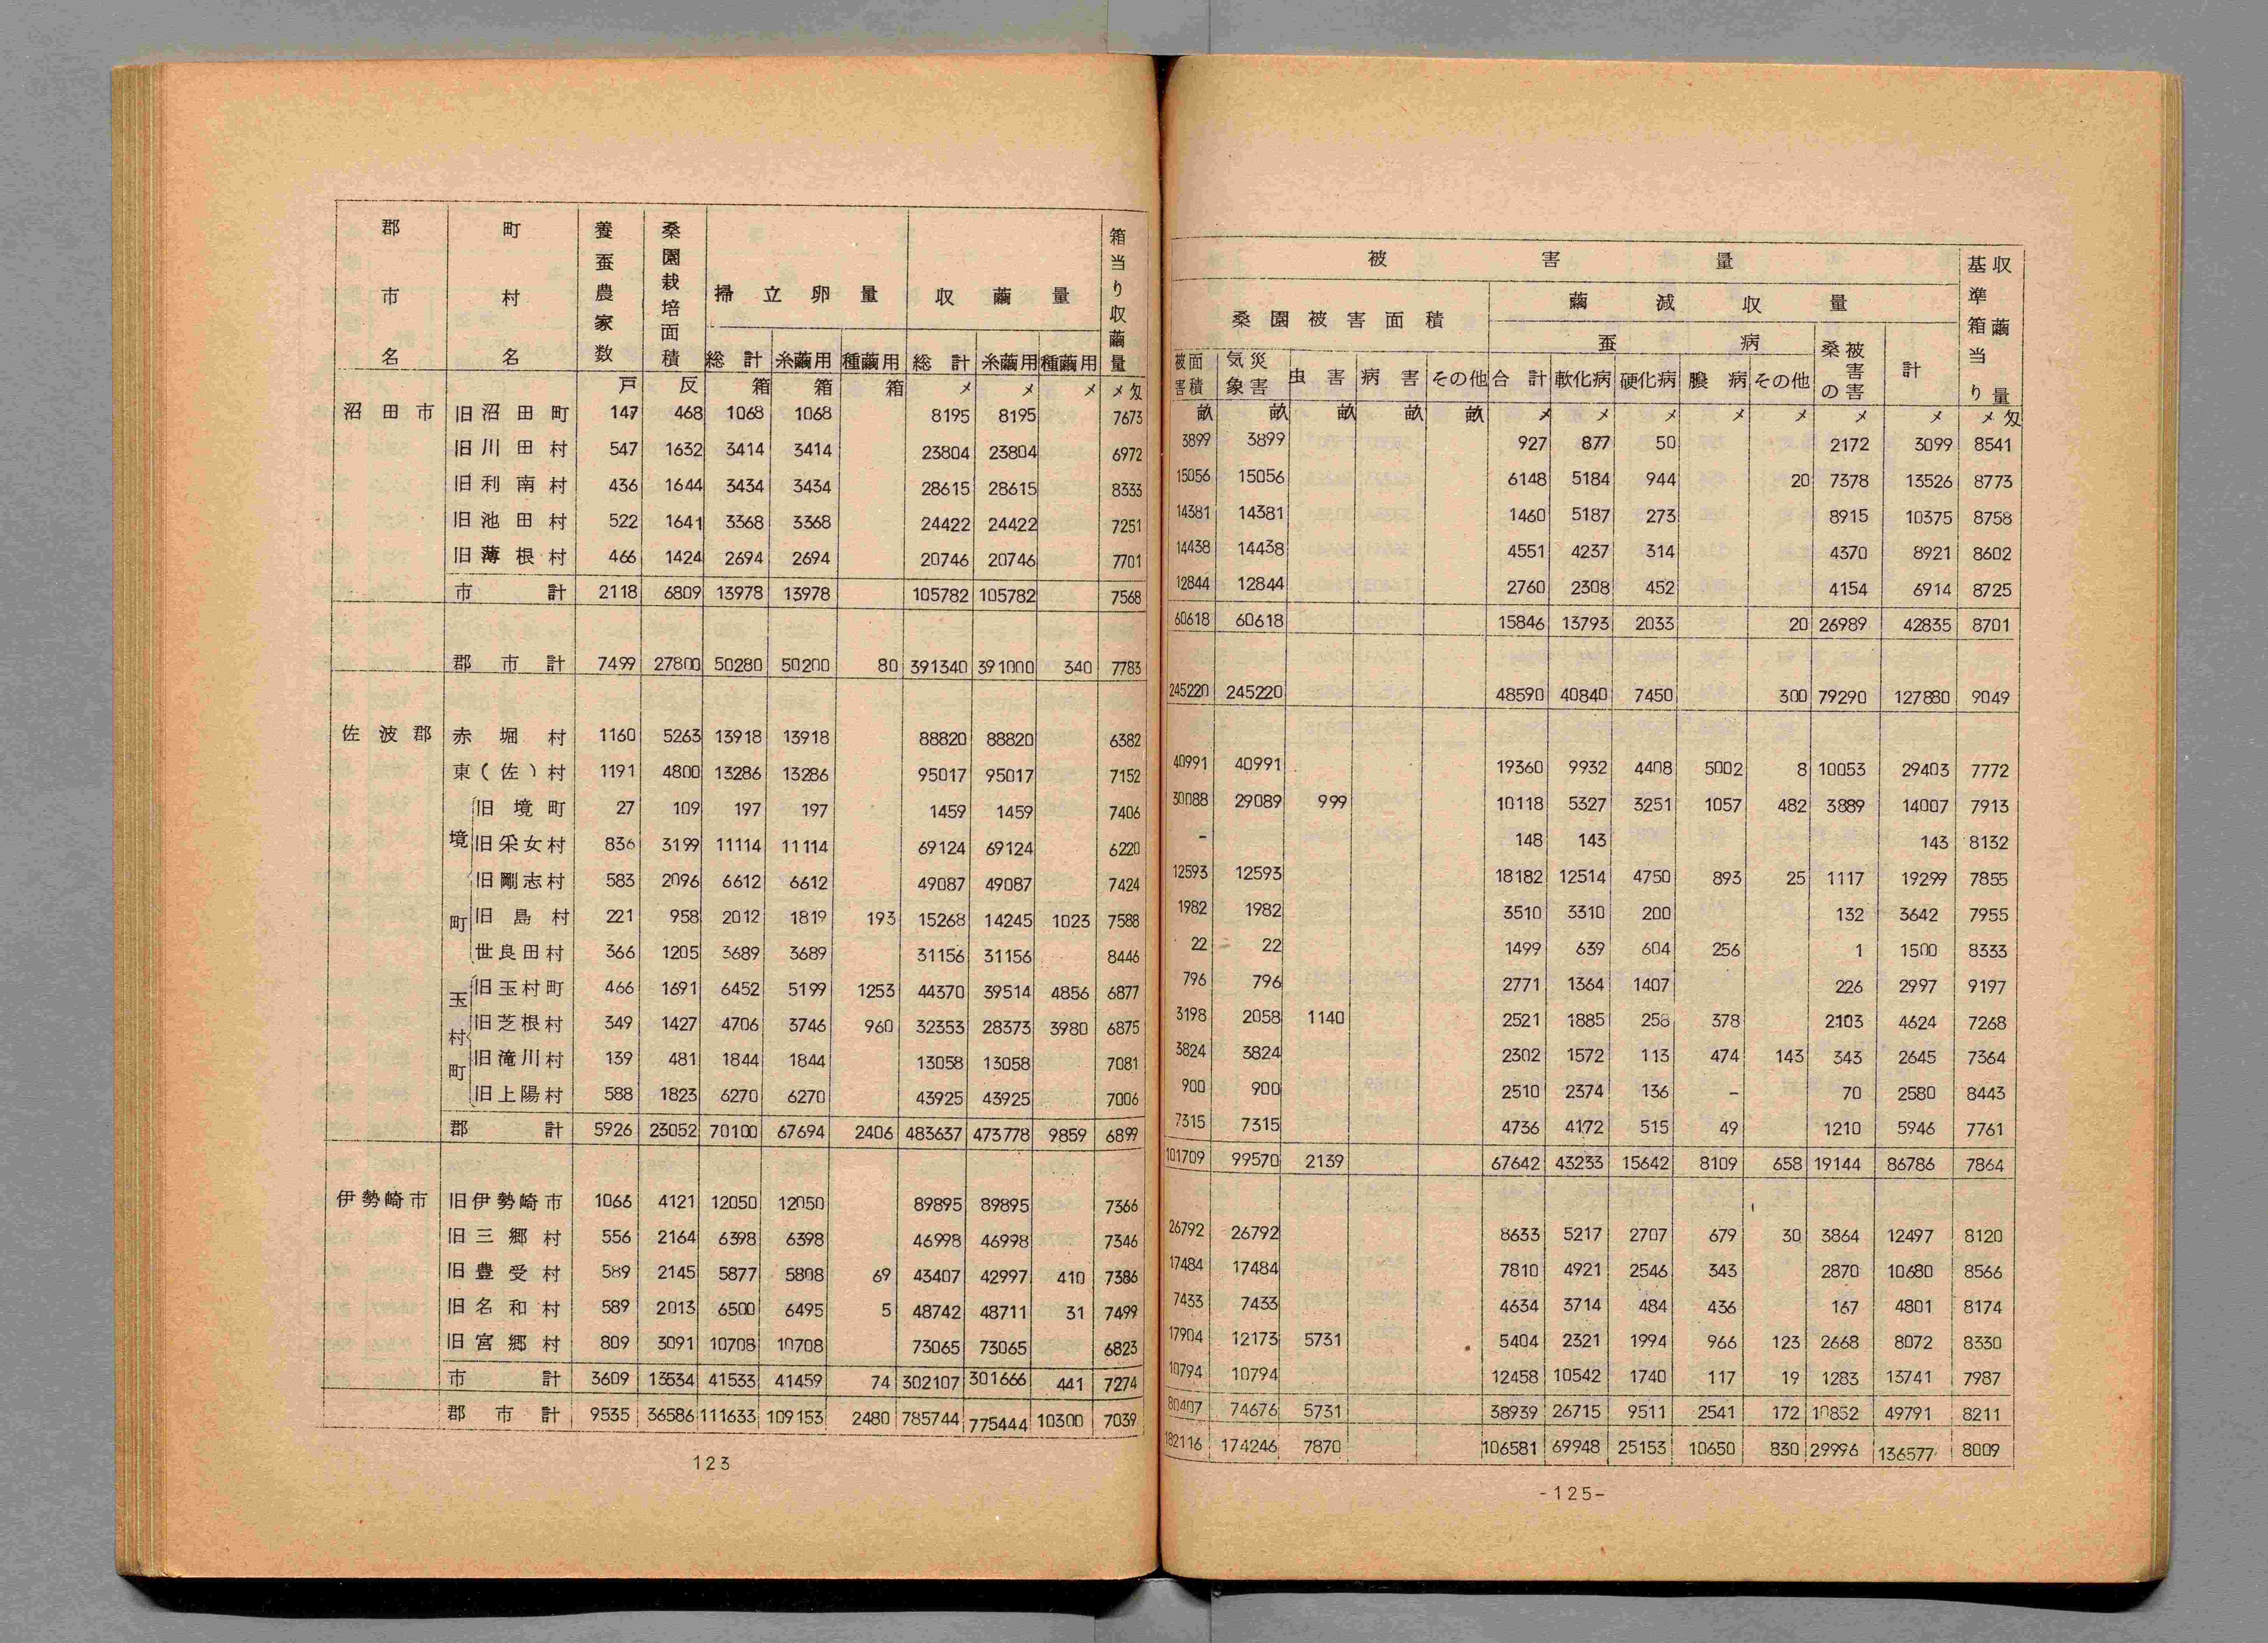 郡市名 町村名 養蚕農家数 桑園栽培面積 掃立卵量 収繭量 箱当り収繭量
総計 糸繭用 種繭用 総計 糸繭用 種繭用
戸 反 箱 箱 箱 メ メ メ メ匁
沼田市 旧沼田町 147 468 1068 1068 8195 8195 7673
旧川田村 547 1632 3414 3414 23804 23804 6972
旧利南村 436 1644 3434 3434 28615 28615 8333
旧池田村 522 1641 3368 3368 24422 24422 7251
旧薄根村 466 1424 2694 2694 20746 20746 7701
市計 2118 6809 13978 13978 105782 105782 7568
郡市計 7499 27800 50280 50200 80 391340 391000 340 7783
佐波郡 赤堀村 1160 5263 13918 13918 88820 88820 6382
東(佐)村 1191 4800 13286 13286 95017 95017 7152
境町 旧境町 27 109 197 197 1459 1459 7406
旧采女村 836 3199 11114 11114 69124 69124 6220
旧剛志村 583 2096 6612 6612 49087 49087 7424
旧島村 221 958 2012 1819 193 15268 14245 1023 7588
世良田村 366 1205 3689 3689 31156 31156 8446
玉村町 旧玉村町 466 1691 6452 5199 1253 44370 39514 4856 6877
旧芝根村 349 1427 4706 3746 960 32353 28373 3980 6875
旧滝川村 139 481 1844 1844 13058 13058 7081
旧上陽村 588 1823 6270 6270 43925 43925 7006
郡計 5926 23052 70100 67694 2406 483637 473778 9859 6899
伊勢崎市 旧伊勢崎市 1066 4121 12050 12050 89895 89895 7366
旧三郷村 556 2164 6398 6398 46998 46998 7346
旧豊受村 589 2145 5877 5808 69 43407 42997 410 7386
旧名和村 589 2013 6500 6495 5 48742 48711 31 7499
旧宮郷村 809 3091 10708 10708 73065 73065 6823
市計 3609 13534 41533 41459 74 302107 301666 441 7274
郡市計 9535 36586 111633 109153 2480 785744 775444 10300 7039
123
被害量 基準箱当り収繭量
桑園被害面積 繭減収量
蚕病 桑の被害 計
被害面積 気象災害 虫害 病害 その他 合計 軟化病 硬化病 膿病 その他
畝 畝 畝 畝 畝 メ メ メ メ メ メ メ メ匁
3899 3899 927 877 50 2172 3099 8541
15056 15056 6148 5184 944 20 7378 13526 8773
14381 14381 1460 5187 273 8915 10375 8758
14438 14438 4551 4237 314 4370 8921 8602
12844 12844 2760 2308 452 4154 6914 8725
60618 60618 15846 13793 2033 20 26989 42835 8701
245220 245220 48590 40840 7450 300 79290 127880 9049
40991 40991 19360 9932 4408 5002 8 10053 29403 7772
30088 29089 999 10118 5327 3251 1057 482 3889 14007 7913
- 148 143 143 8132
12593 12593 18182 12514 4750 893 25 1117 19299 7855
1982 1982 3510 3310 200 132 3642 7955
22 22 1499 639 604 256 1 1500 8333
796 796 2771 1364 1407 226 2997 9197
3198 2058 1140 2521 1885 258 378 2103 4624 7268
3824 3824 2302 1572 113 474 143 343 2645 7364
900 900 2510 2374 136 - 70 2580 8443
7315 7315 4736 4172 515 49 1210 5946 7761
101709 99570 2139 67642 43233 15642 8109 658 19144 86786 7864
26792 26792 8633 5217 2707 679 30 3864 12497 8120
17484 17484 7810 4921 2546 343 2870 10680 8566
7433 7433 4634 3714 484 436 167 4801 8174
17904 12173 5731 5404 2321 1994 966 123 2668 8072 8330
10794 10794 12458 10542 1740 117 19 1283 13741 7987
80407 74676 5731 38939 26715 9511 2541 172 10852 49791 8211
182116 174246 7870 106581 69948 25153 10650 830 29996 136577 8009
-125-